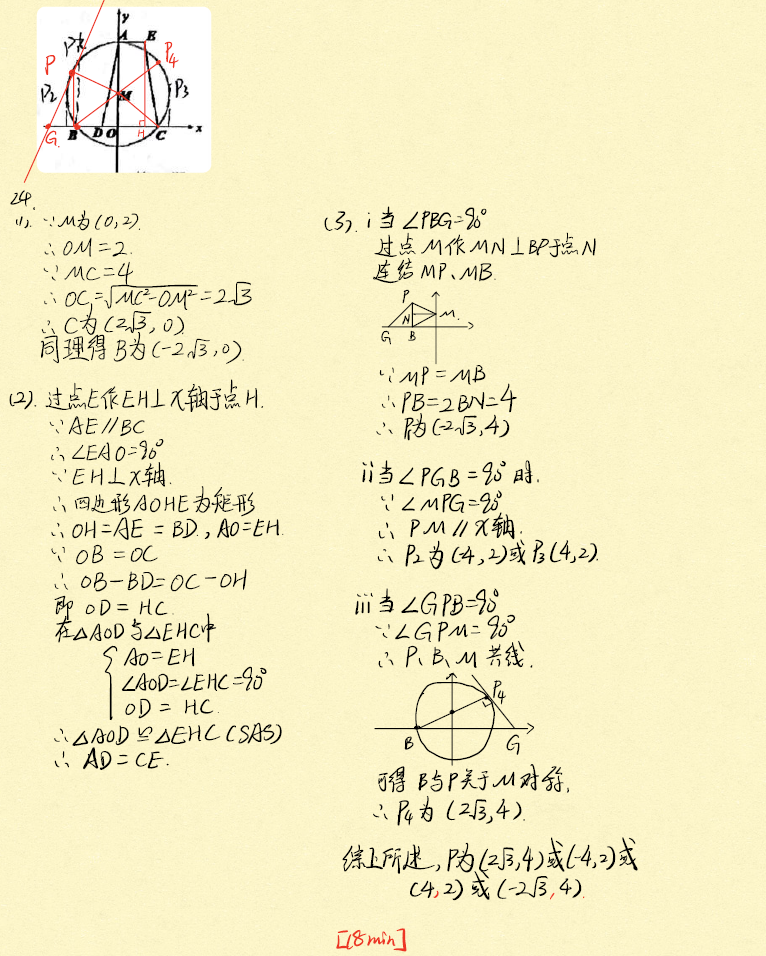 y
A
E
P
P₄
P₂
M
P₃
G
B
D
O
H
C
x
24.
(1). ∵M为(0,2).
∴OM=2.
∵MC=4
∴OC=√MC²-OM²=2√3
∴C为(2√3,0)
同理得B为(-2√3,0).
(2). 过点E作EH⊥X轴于点H.
∵AE//BC
∴∠EAO=90°
∵EH⊥X轴.
∴四边形AOHE为矩形
∴OH=AE=BD.,AO=EH.
∵OB=OC
∴OB-BD=OC-OH
即OD=HC.
在△AOD与△EHC中
{AO=EH
∠AOD=∠EHC=90°
OD=HC.
∴△AOD≌△EHC(SAS)
∴AD=CE.
(3). i当∠PBG=90°
过点M作MN⊥BP于点N
连结MP、MB.
P
N
M.
G
B
∵MP=MB
∴PB=2BN=4
∴P为(-2√3,4)
ii当∠PGB=90°时.
∵∠MPG=90°
∴PM//X轴.
∴P₂为(-4,2)或P₃(4,2).
iii当∠GPB=90°
∵∠GPM=90°
∴P、B、M共线.
P₄
B
G
可得B与P关于M对称,
∴P₄为(2√3,4).
综上所述,P为(2√3,4)或(-4,2)或
(4,2)或(-2√3,4).
[18min]